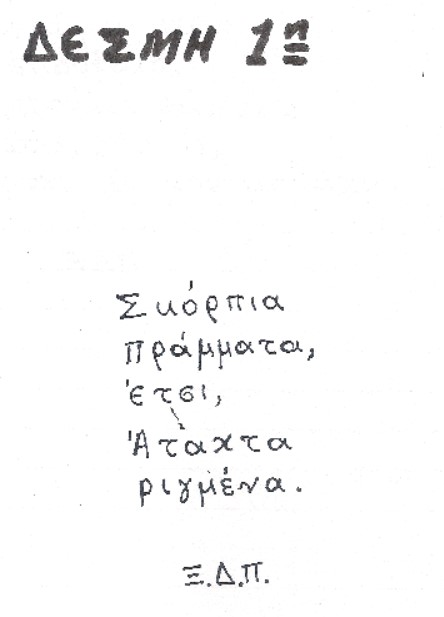 ΔΕΣΜΗ 1η
Σκόρπια
πράμματα,
έτσι,
Άταχτα
ριγμένα.
Ξ.Δ.Π.